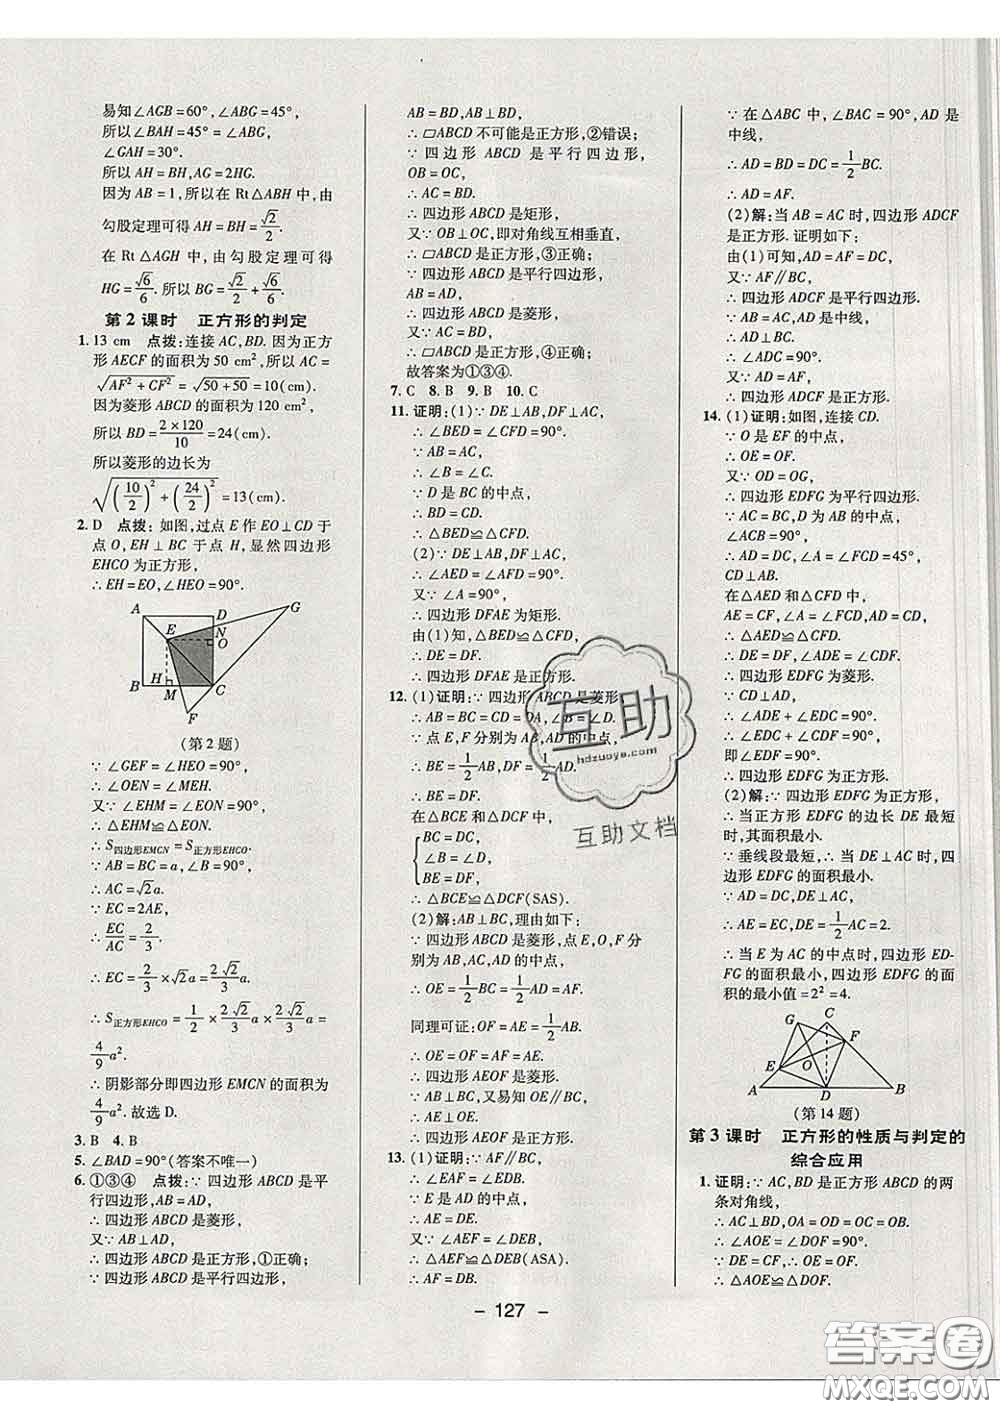 易知∠AGB=60°,∠ABG=45°,
所以∠BAH=45°=∠ABG,
∠GAH=30°.
所以AH=BH,AG=2HG.
因为AB=1,所以在Rt△ABH中,由
勾股定理可得AH=BH=√2/2.
在Rt△AGH中,由勾股定理可得
HG=√6/6.所以BG=√2/2+√6/6.
第2课时 正方形的判定
1. 13 cm 点拨:连接AC,BD.因为正方
形AECF的面积为50 cm²,所以AC=
√(AF²+CF²)=√(50+50)=10(cm).
因为菱形ABCD的面积为120 cm²,
所以BD=(2×120)/10=24(cm).
所以菱形的边长为
√((10/2)²+(24/2)²)=13(cm).
2. D 点拨:如图,过点E作EO⊥CD于
点O,EH⊥BC于点H,显然四边形
EHCO为正方形,
∴EH=EO,∠HEO=90°.
A D G E N O B H M C F
(第2题)
∵∠GEF=∠HEO=90°,
∴∠OEN=∠MEH.
又∵∠EHM=∠EON=90°,
∴△EHM≌△EON.
∴S四边形EMCN=S正方形EHCO.
∵AB=BC=a,∠B=90°,
∴AC=√2a.
∵EC=2AE,
∴EC/AC=2/3.
∴EC=2/3×√2a=2√2/3a.
∴S正方形EHCO=1/2×2√2/3a×2√2/3a=
4/9a².
∴阴影部分即四边形EMCN的面积为
4/9a².故选D.
3. B 4. B
5. ∠BAD=90°(答案不唯一)
6. ①③④ 点拨:∵四边形ABCD是平
行四边形,AB=AD,
∴四边形ABCD是菱形,
又∵AB⊥AD,
∴四边形ABCD是正方形,①正确;
∵四边形ABCD是平行四边形,
AB=BD,AB⊥BD,
∴▱ABCD不可能是正方形,②错误;
∵四边形ABCD是平行四边形,
OB=OC,
∴AC=BD.
∴四边形ABCD是矩形,
又∵OB⊥OC,即对角线互相垂直,
∴▱ABCD是正方形,③正确;
∵四边形ABCD是平行四边形,
AB=AD,
∴四边形ABCD是菱形,
又∵AC=BD,
∴▱ABCD是正方形,④正确;
故答案为①③④.
7. C 8. B 9. B 10. C
11. 证明:(1)∵DE⊥AB,DF⊥AC,
∴∠BED=∠CFD=90°.
∵AB=AC,
∴∠B=∠C.
∵D是BC的中点,
∴BD=CD.
∴△BED≌△CFD.
(2)∵DE⊥AB,DF⊥AC,
∴∠AED=∠AFD=90°.
又∵∠A=90°,
∴四边形DFAE为矩形.
由(1)知,△BED≌△CFD,
∴DE=DF.
∴四边形DFAE是正方形.
12. (1)证明:∵四边形ABCD是菱形,
∴AB=BC=CD=DA,∠B=∠D.
∵点E,F分别为AB,AD的中点,
∴BE=1/2AB,DF=1/2AD.
∴BE=DF.
在△BCE和△DCF中,
BC=DC,
∠B=∠D,
BE=DF,
∴△BCE≌△DCF(SAS).
(2)解:AB⊥BC,理由如下:
∵四边形ABCD是菱形,点E,O,F分
别为AB,AC,AD的中点,
∴OE=1/2BC=1/2AD=AF.
同理可证:OF=AE=1/2AB.
∴OE=OF=AE=AF.
∴四边形AEOF是菱形.
∵AB⊥BC,又易知OE∥BC,
∴AE⊥OE.
∴四边形AEOF是正方形.
13. (1)证明:∵AF∥BC,
∴∠EAF=∠EDB.
∵E是AD的中点,
∴AE=DE.
∵∠AEF=∠DEB,
∴△AEF≌△DEB(ASA).
∴AF=DB.
∵在△ABC中,∠BAC=90°,AD是
中线,
∴AD=BD=DC=1/2BC.
∴AD=AF.
(2)解:当AB=AC时,四边形ADCF
是正方形.证明如下:
由(1)可知,AF=DB=DC,
又∵AF∥BC,
∴四边形ADCF是平行四边形.
∵AB=AC,AD是中线,
∴AD⊥BC.
∴∠ADC=90°.
又∵AD=AF,
∴四边形ADCF是正方形.
14. (1)证明:如图,连接CD.
∵O是EF的中点,
∴OE=OF.
又∵OD=OG,
∴四边形EDFG是平行四边形.
∵AC=BC,D为AB的中点,
∠ACB=90°,
∴AD=DC,∠A=∠FCD=45°,
CD⊥AB.
在△AED和△CFD中,
AE=CF,∠A=∠FCD,AD=CD,
∴△AED≌△CFD.
∴DE=DF,∠ADE=∠CDF.
∴四边形EDFG为菱形.
∵CD⊥AD,
∴∠ADE+∠EDC=90°.
∴∠EDC+∠CDF=90°,
即∠EDF=90°.
∴四边形EDFG为正方形.
(2)解:∵四边形EDFG为正方形,
∴当正方形EDFG的边长DE最短
时,其面积最小.
∵垂线段最短,∴当DE⊥AC时,四
边形EDFG的面积最小.
∵AD=DC,DE⊥AC,
∴AE=EC,DE=1/2AC=2.
∴当E为AC的中点时,四边形ED-
FG的面积最小,四边形EDFG的面
积的最小值=2²=4.
G C F E O A D B
(第14题)
第3课时 正方形的性质与判定的
综合应用
1. 证明:∵AC,BD是正方形ABCD的两
条对角线,
∴AC⊥BD,OA=OD=OC=OB.
∴∠AOE=∠DOF=90°.
∵DE=CF,∴OE=OF.
∴△AOE≌△DOF.
- 127 -
互助
hdzuoye.com
互助文档
答案圈
MXQE.COM